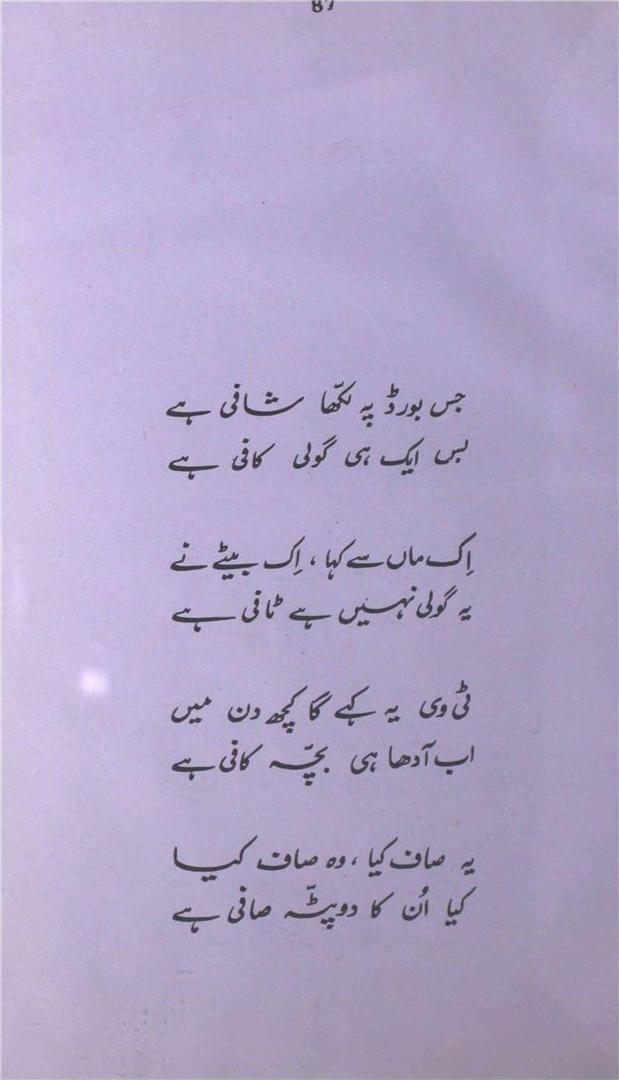 87
جس بورڈ پہ لکّھا شافی ہے
بس ایک ہی گولی کافی ہے
اِک ماں سے کہا ، اِک بیٹے نے
یہ گولی نہیں ہے ٹافی ہے
ٹی وی یہ کہے گا کچھ دن میں
اب آدھا ہی بچّہ کافی ہے
یہ صاف کیا ، وہ صاف کیا
کیا اُن کا دوپٹّہ صافی ہے